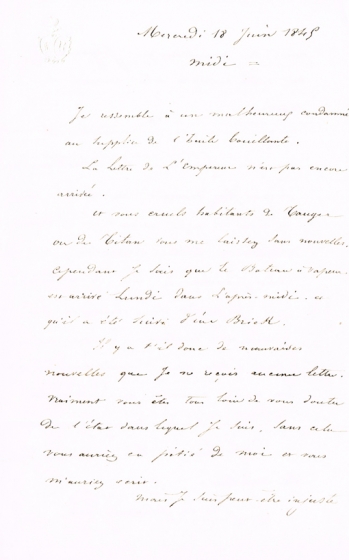 Mercredi 18 Juin 1845
midi =
Je ressemble à un malheureux condamné
au supplice de l'huile bouillante.
La lettre de L'Empereur n'est pas encore
arrivée.
et vous cruels habitants de Tanger
ou de Tétuan vous me laissez sans nouvelles.
Cependant Je sais que le Bateau à vapeur
est arrivé Lundi dans l'après-midi, et
qu'il a été suivi d'un Brick.
Il y a t'il donc de mauvaises
nouvelles que Je ne reçois aucune lettre.
Vraiment vous êtes tous loin de vous douter
de l'état dans lequel Je suis, sans cela
vous auriez eu pitié de moi et vous
m'auriez écrit.
Mais Je suis peut-être injuste